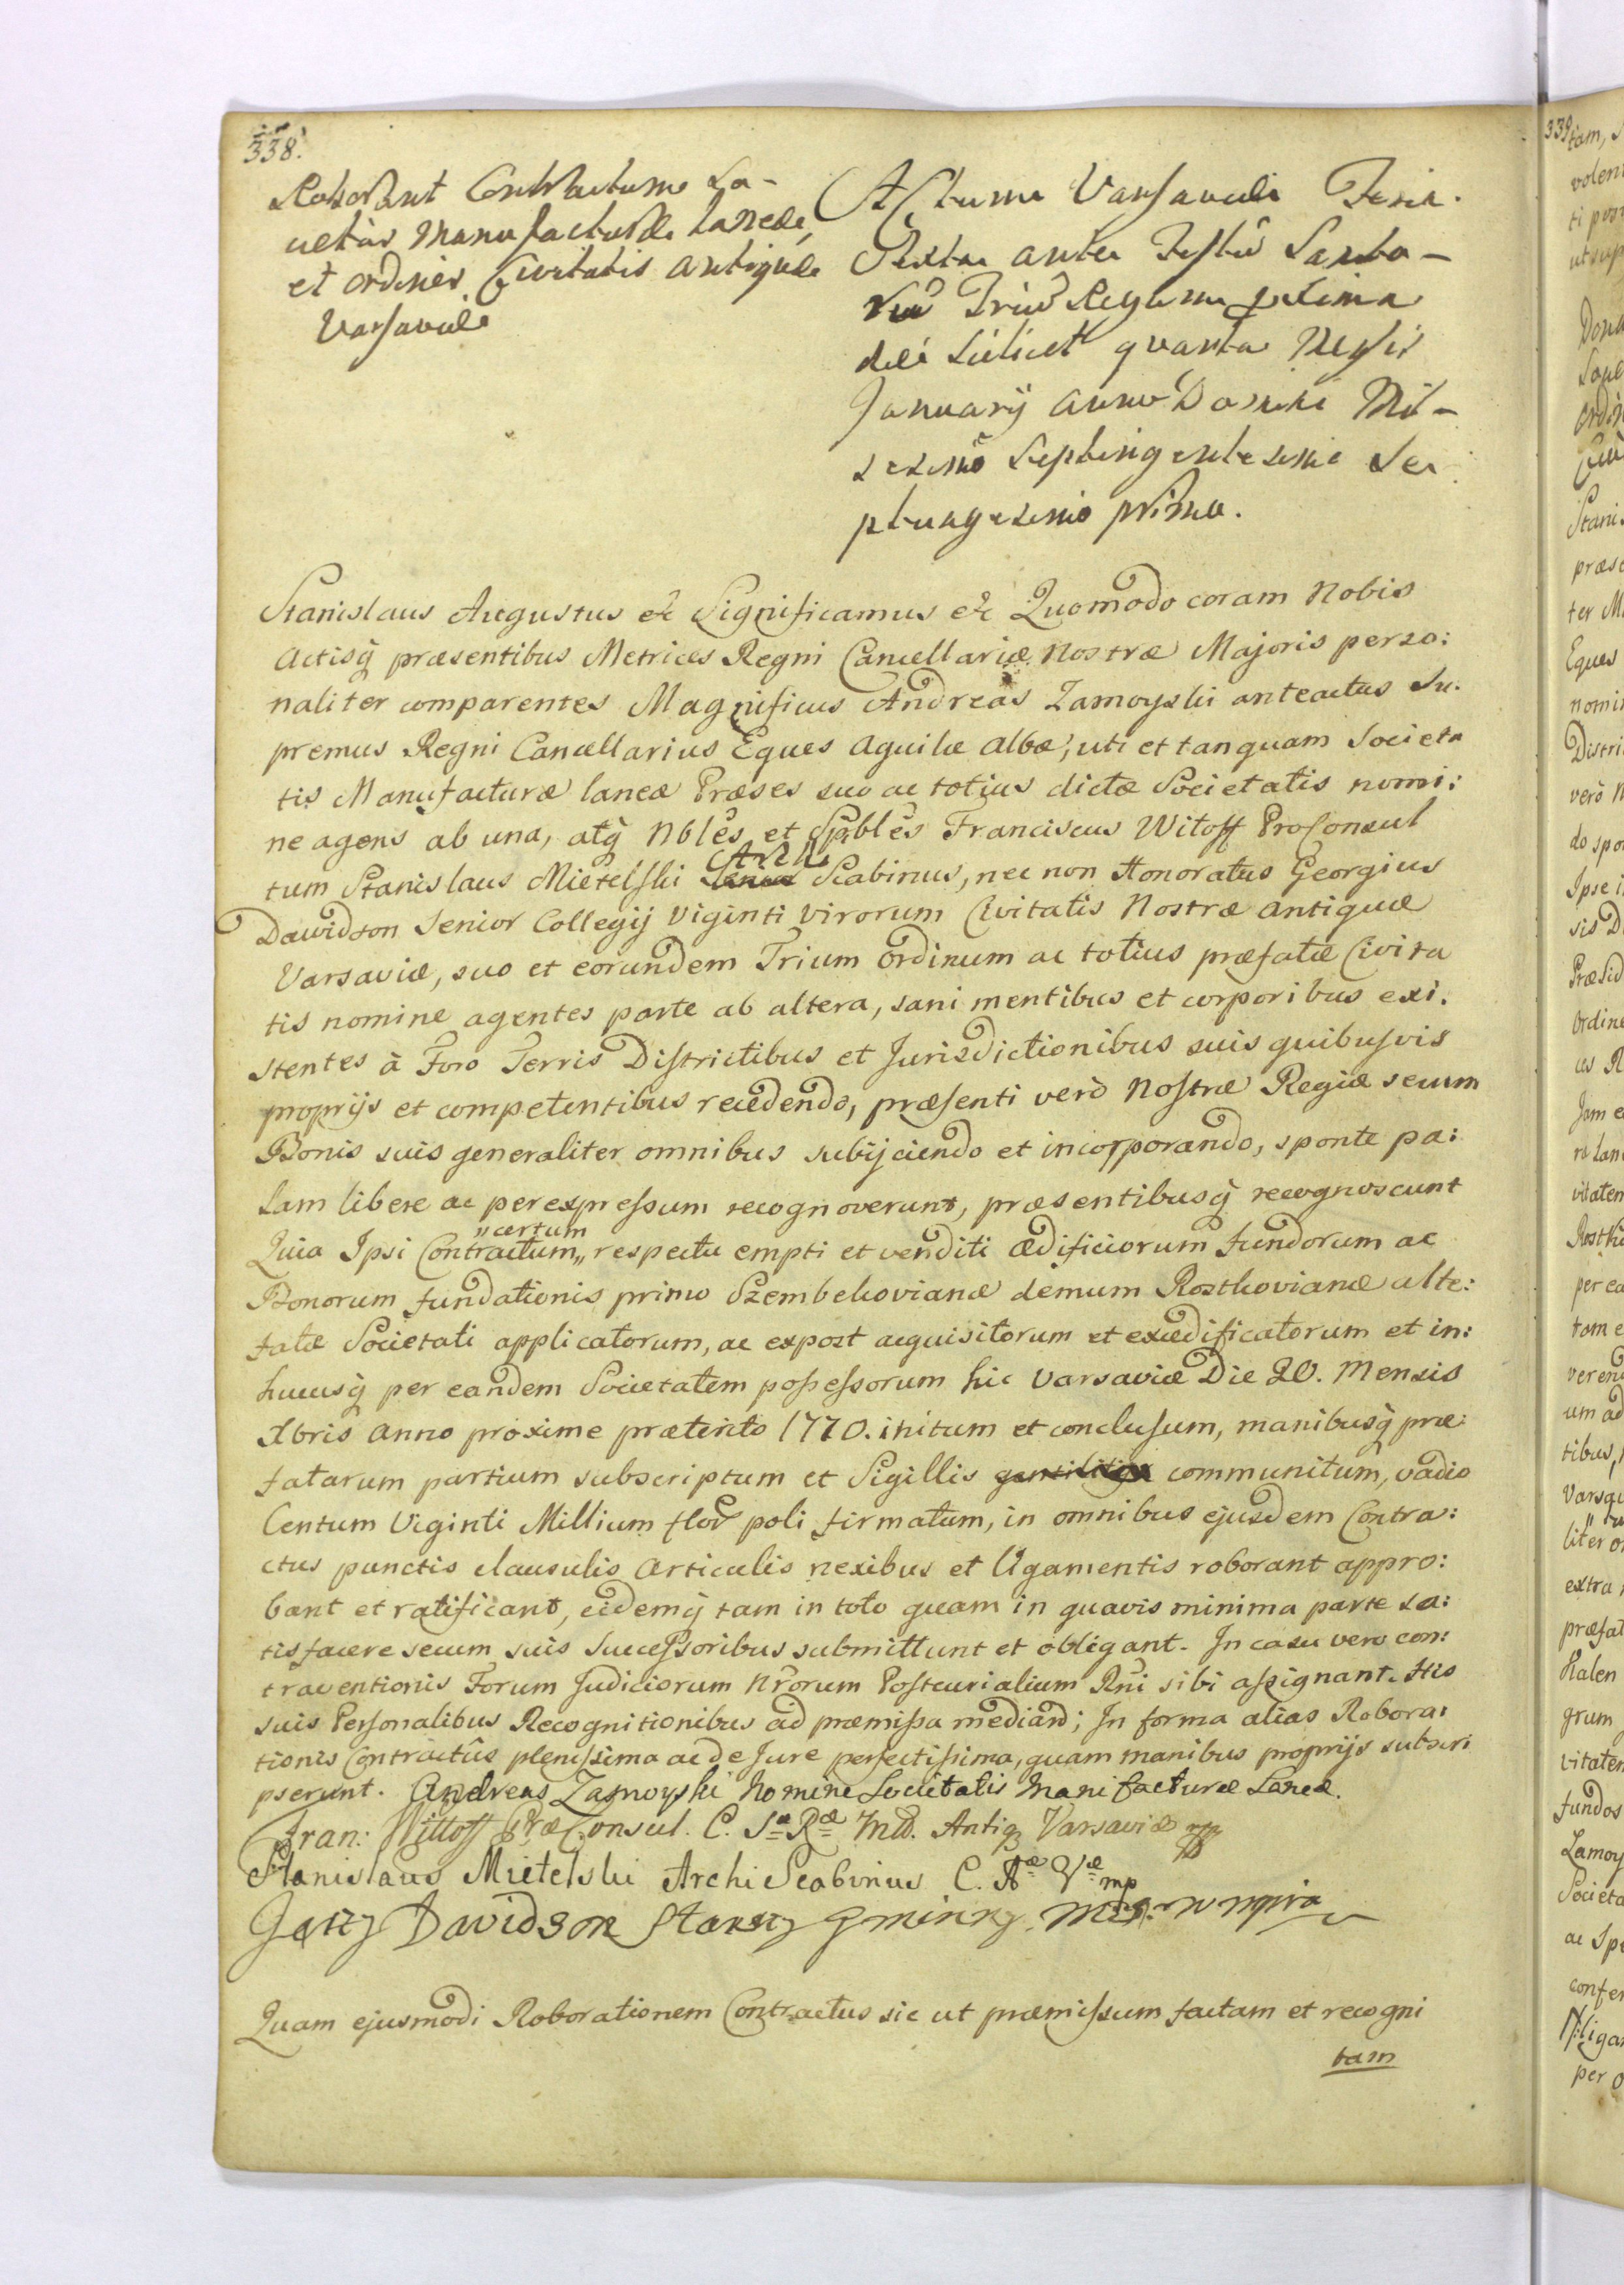 338.
Roborant Contractum So-
cietas Manufacturæ Laneæ
et Ordines Civitatis Antiquæ
Varsaviæ
Actum Varsaviæ Feria
Sexta ante Festũ Sancto-
rũ Triũ Regum proxima
die scilicet quarta Mensis
January Anno Domini Mil-
lesimo Septingentesimo Se
ptuagesimo primo.
Stanislaus Augustus &c Significamus &c Quomodo coram Nobis
Actisq̃ præsentibus Metrices Regni Cancellariæ Nostræ Majoris perso:
naliter comparentes Magnificus Andreas Zamoyski anteactus Su.
premus Regni Cancellarius Eques Aquilæ Albæ, uti et tanquam Societa
tis Manufacturæ laneæ Præses suo ac totius dictæ Societatis nomi:
ne agens ab una, atq̃ Nbles et Spbles Franciscus Witoff ProConsul
tum Stanislaus Mietelski Archi Scabinus, nec non Honoratus Georgius
Dawidson Senior Collegij Viginti Virorum Civitatis Nostræ Antiquæ
Varsaviæ, suo et eorundem Trium Ordinum ac totius præfatæ Civita
tis nomine agentes parte ab altera, sani mentibus et corporibus exi.
stentes à Foro Terris Districtibus et Jurisdictionibus suis quibusvis
proprijs et competentibus recedendo, præsenti verò Nostræ Regiæ secum
Bonis suis generaliter omnibus subijciendo et incorporando, sponte pa:
lam libere ac per expressum recognoverunt, præsentibusq̃ recognoscunt
Quia Ipsi Contractum „certum„ respectu empti et venditi ædificiorum fundorum ac
Bonorum fundationis primo Szembekovianæ demum Rostkovianæ alte:
fatæ Societati applicatorum, ac expost acquisitorum et exædificatorum et in:
hucusq̃ per eandem Societatem possessorum hic Varsaviæ Die 20. Mensis
Xbris Anno proxime præterito 1770. initum et conclusum, manibusq̃ præ:
fatarum partium subscriptum et Sigillis communitum, vadio
Centum Viginti Millium flor poli firmatum, in omnibus ejusdem Contra:
ctus punctis clausulis Articulis nexibus et ligamentis roborant appro:
bant et ratificant, eidemq̃ tam in toto quam in quavis minima parte sa:
tisfacere secum suis Successoribus submittunt et obligant. In casu vero con:
traventionis Forum Judiciorum Nrorum Postcurialium Rni sibi assignant. His
suis Personalibus Recognitionibus ad præmissa mediand; In forma alias Robora:
tionis Contractûs plenissima ac de Jure perfectissima, quam manibus proprijs subscri
pserunt. Andreas Zamoyski Nomine Societatis Manifacturæ Laneæ.
Fran: Wittoff PræConsul. C. S R Mtis. Antiq Varsaviæ mp
Stanislaus Mietelski Archi Scabinus C. A V mp
Jerzy Davidson Starszy Gminny
Quam ejusmodi Roborationem Contractus sic ut præmissum factam et recogni
tam
339